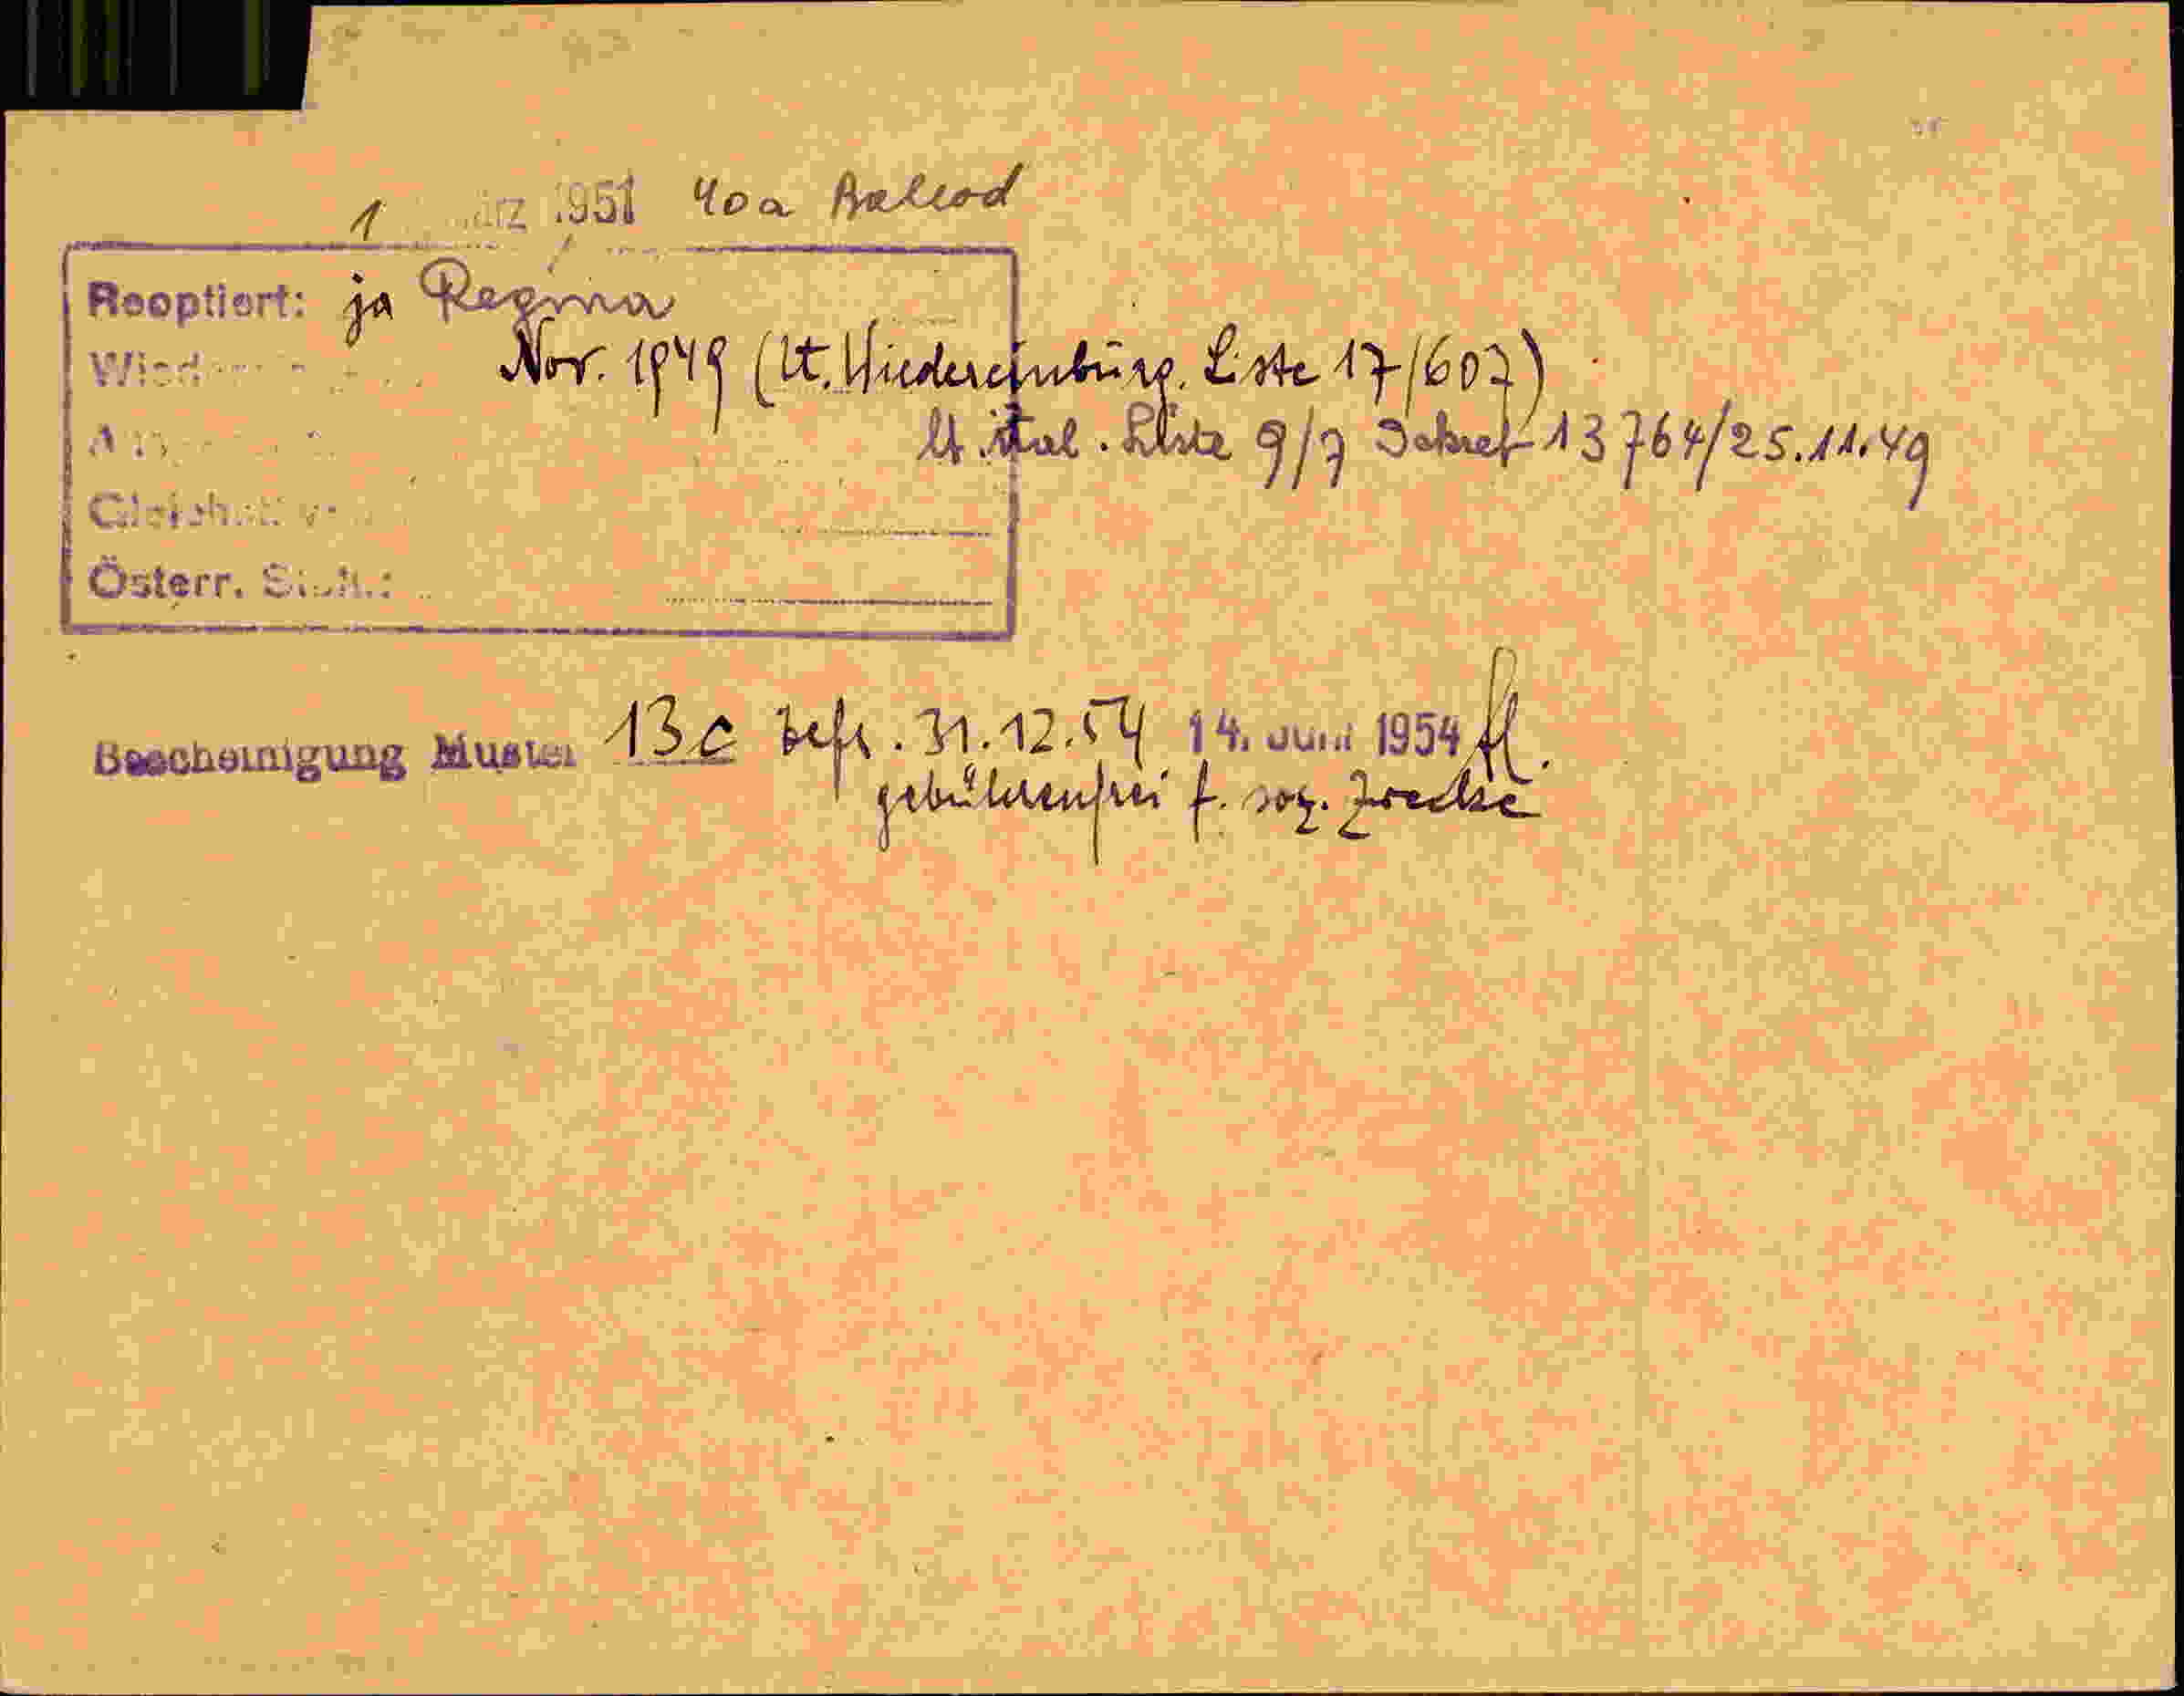 1 März 1951 40a
Reoptiert: ja Regina
Nov. 1949 (lt. Wiedereinbürg. Liste 17/607)
lt. ital. Liste 9/7 Dekret 13764/25.11.49
Österr.
Bescheinigung Muster 13c befr. 31.12.54 14. Juni 1954
gebührenfrei f. soz. Zwecke